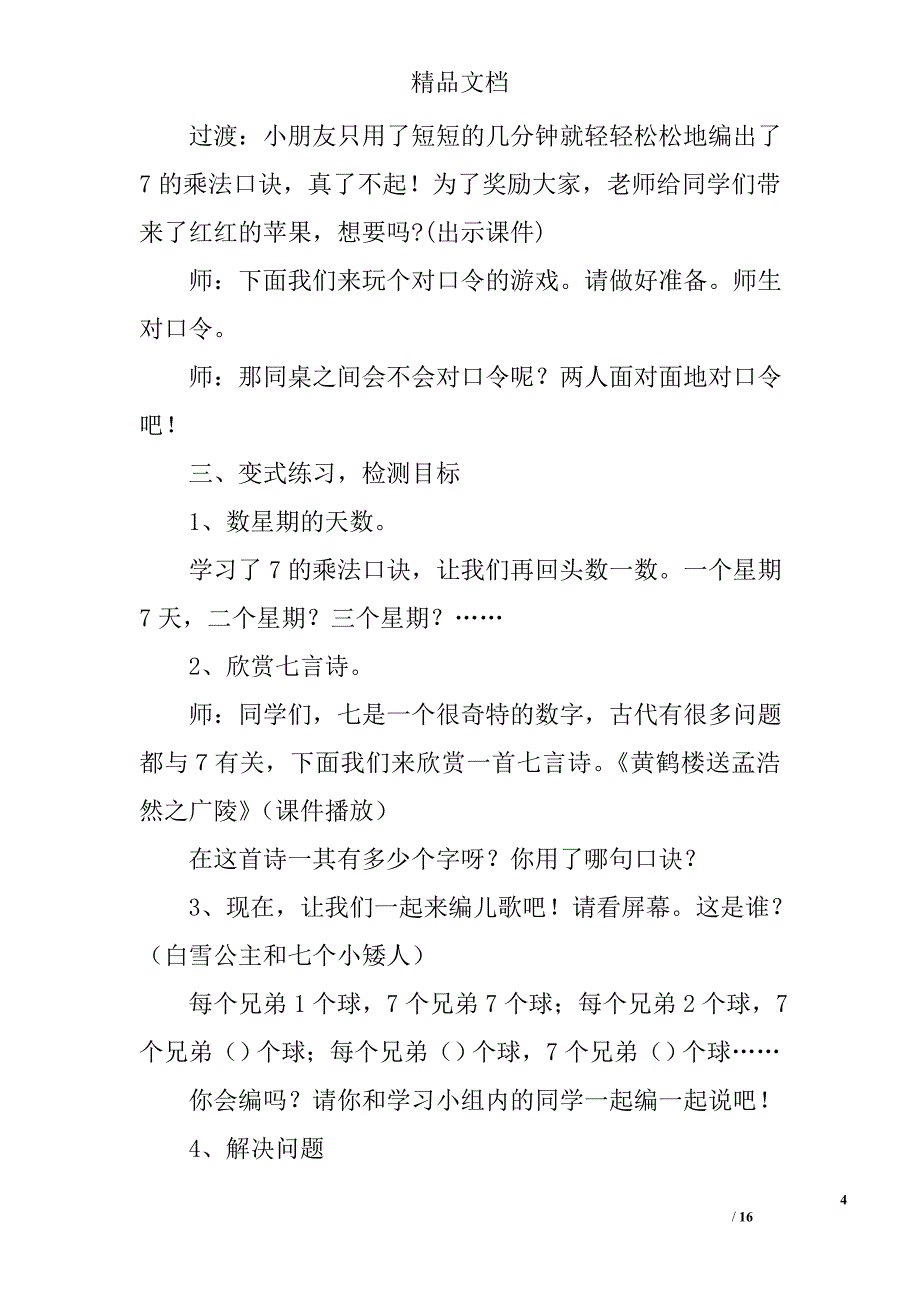 精品文档
过渡：小朋友只用了短短的几分钟就轻轻松松地编出了
7 的乘法口诀，真了不起！为了奖励大家，老师给同学们带
来了红红的苹果，想要吗?(出示课件)
师：下面我们来玩个对口令的游戏。请做好准备。师生
对口令。
师：那同桌之间会不会对口令呢？两人面对面地对口令
吧！
三、变式练习，检测目标
1、数星期的天数。
学习了 7 的乘法口诀，让我们再回头数一数。一个星期
7 天，二个星期？三个星期？……
2、欣赏七言诗。
师：同学们，七是一个很奇特的数字，古代有很多问题
都与 7 有关，下面我们来欣赏一首七言诗。《黄鹤楼送孟浩
然之广陵》（课件播放）
在这首诗一其有多少个字呀？你用了哪句口诀？
3、现在，让我们一起来编儿歌吧！请看屏幕。这是谁？
（白雪公主和七个小矮人）
每个兄弟 1 个球，7 个兄弟 7 个球；每个兄弟 2 个球，7
个兄弟（）个球；每个兄弟（）个球，7 个兄弟（）个球……
你会编吗？请你和学习小组内的同学一起编一起说吧！
4、解决问题
4
/ 16